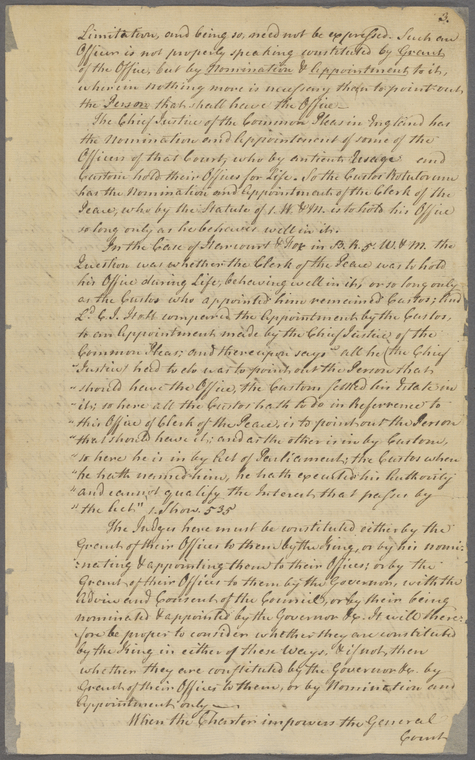 3.
Limitation, and being so, need not be expressed. Such an
Officer is not properly speaking constituted by Grant
of the Office, but by Nomination & Appointment to it,
wherein nothing more is necessary than to point out
the Person that shall have the Office.
The Chief Justice of the Common Pleas in England has
the Nomination and Appointment of some of the
Officers of that Court, who by antient Usage and
Custom hold their Offices for Life. So the Custos Rotulorum
has the Nomination and Appointment of the Clerk of the
Peace, who by the Statute of 1. W. & M. is to hold his Office
so long only as he behaves well in it.
In the Case of Harcourt & Fox in B.R. 5. W. & M. the
Question was whether the Clerk of the Peace was to hold
his Office during Life, behaving well in it, or so long only
as the Custos who appointed him remained Custos; And
Ld. C.J. Holt compared the Appointment by the Custos,
to an Appointment made by the Chief Justice of the
Common Pleas; and thereupon says "all he (the Chief
"Justice) had to do was to point out the Person that
"should have the Office, the Custom settled his Estate in
"it; so here all the Custos hath to do in Reference to
"this Office of Clerk of the Peace, is to point out the Person
"that should have it; and as the other is in by Custom,
"so here he is in by Act of Parliament; the Custos when
"he hath named him, he hath executed his Authority
"and cannot qualify the Interest that passes by
"the Act." 1. Show. 535
The Judges here must be constituted either by the
Grant of their Offices to them by the King, or by his nomi-
-nating & appointing them to their Offices; or by the
Grant of their Offices to them by the Governor, with the
Advice and Consent of the Council, or by their being
nominated & appointed by the Governor &c. It will there-
fore be proper to consider whether they are constituted
by the King in either of these Ways, & if not, then
whether they are constituted by the Governor &c. by
Grant of their Offices to them, or by Nomination and
Appointment only
When the Charter impowers the General
Court